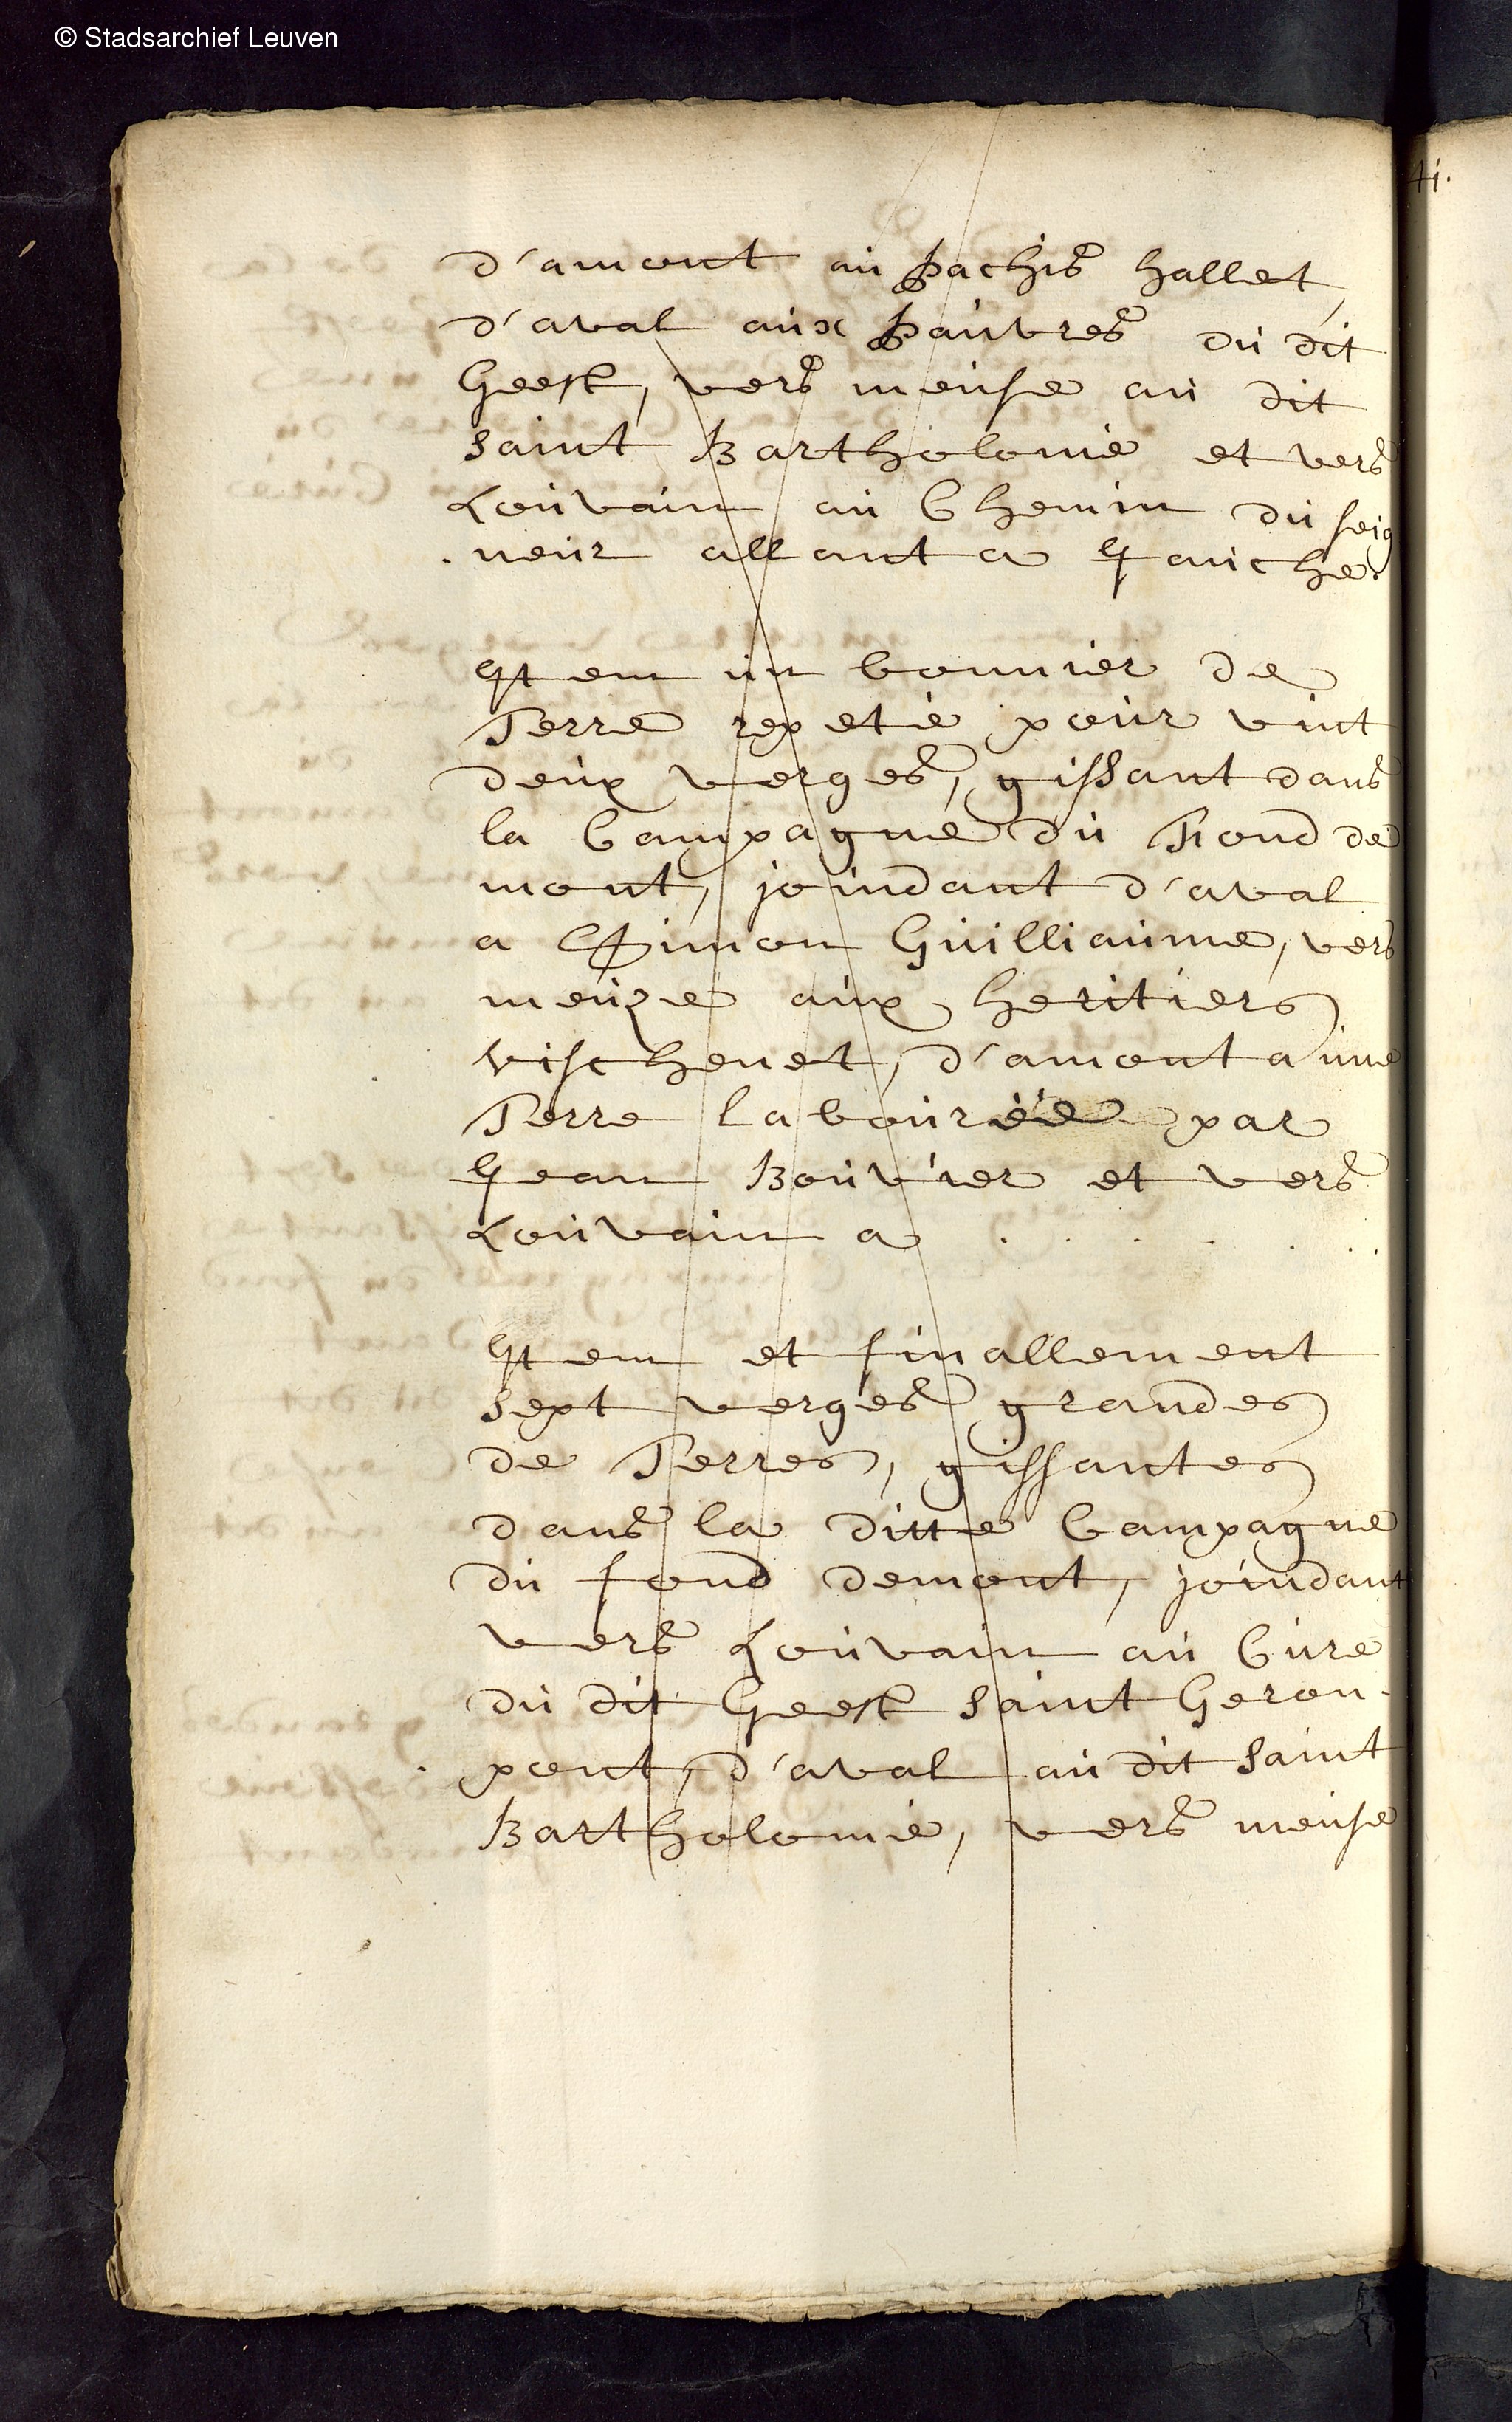 © Stadsarchief Leuven
41.
d'amont au pachis hallet,
d'aval aux pauvres du dit
Geest, vers meuse au dit
saint Bartholomé et vers
Louvain au Chemin du seig
neur allant a Jauche.
Item un bonnier de
Terre repeté pour vint
deux verges, gissant dans
la Campagne du Fond de
mont, joindant d'aval
a Simon Guilliaume, vers
meuze aux heritiers
vischenet, d'amont a une
Terre labourée par
Jean Bouvier et vers
Louvain a . . . . . .
Item et finallement
sept verges grandes
de Terres, gissantes
dans la ditte Campagne
du fond demont, joindant
vers Louvain au Cure
du dit Geest saint Geron
pont, d'aval au dit saint
Bartholomé, vers meuse